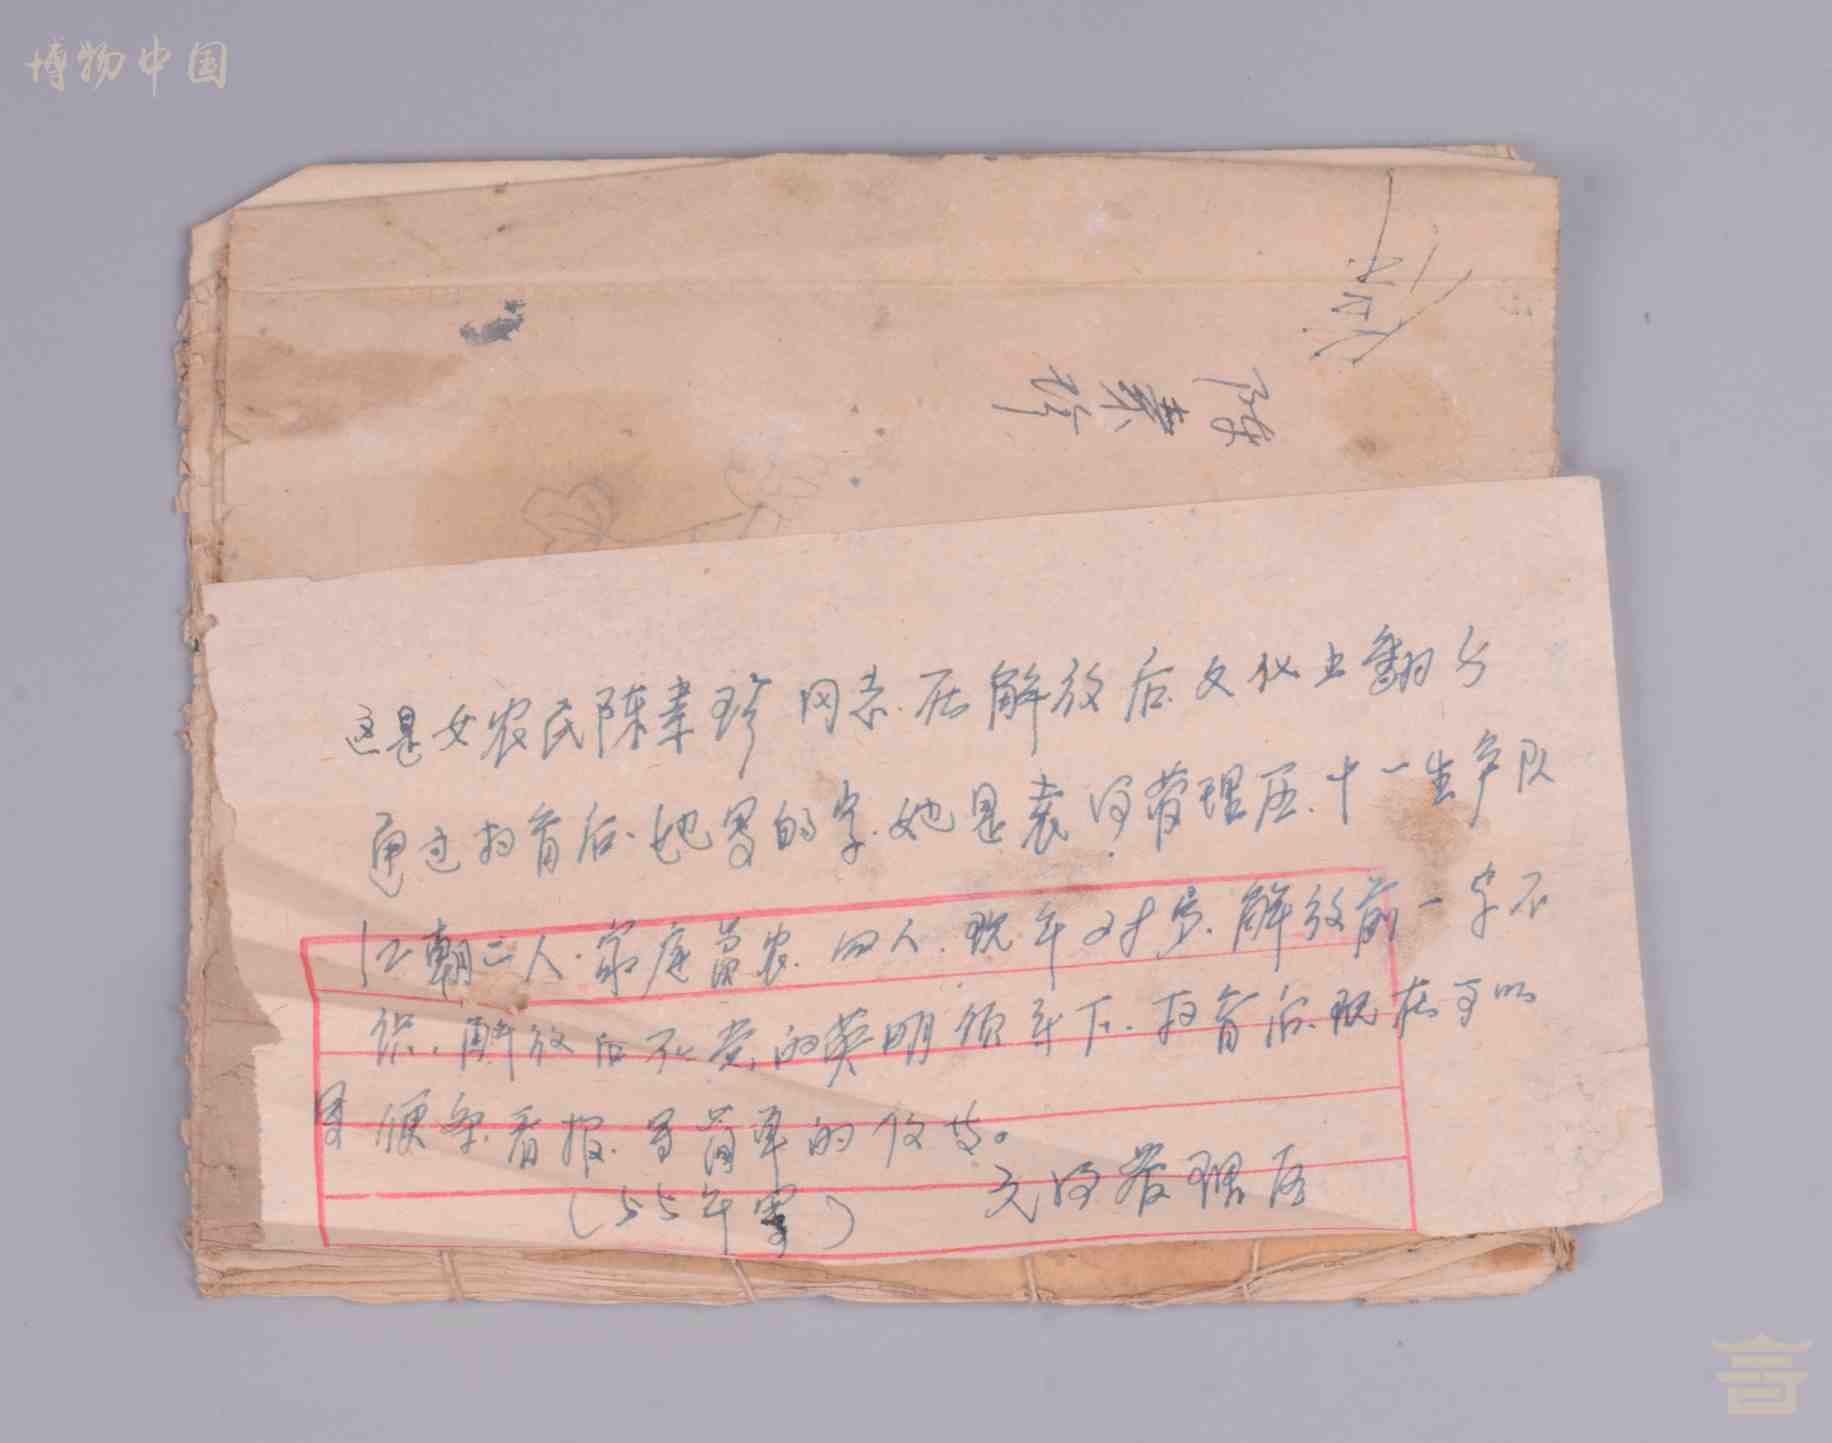 博物中国
陈素珍
这是女农民陈素珍同志.在解放后文化上翻身
通过扫盲后.她写的字.她是袁河管理区.十一生产队
江朝二人.家庭富农.四人.现年27岁.解放前一字不
识.解放后在党的英明领导下.扫盲后.现在可以
写便条.看报.写简单的收支。
(55年写)
元河管理区